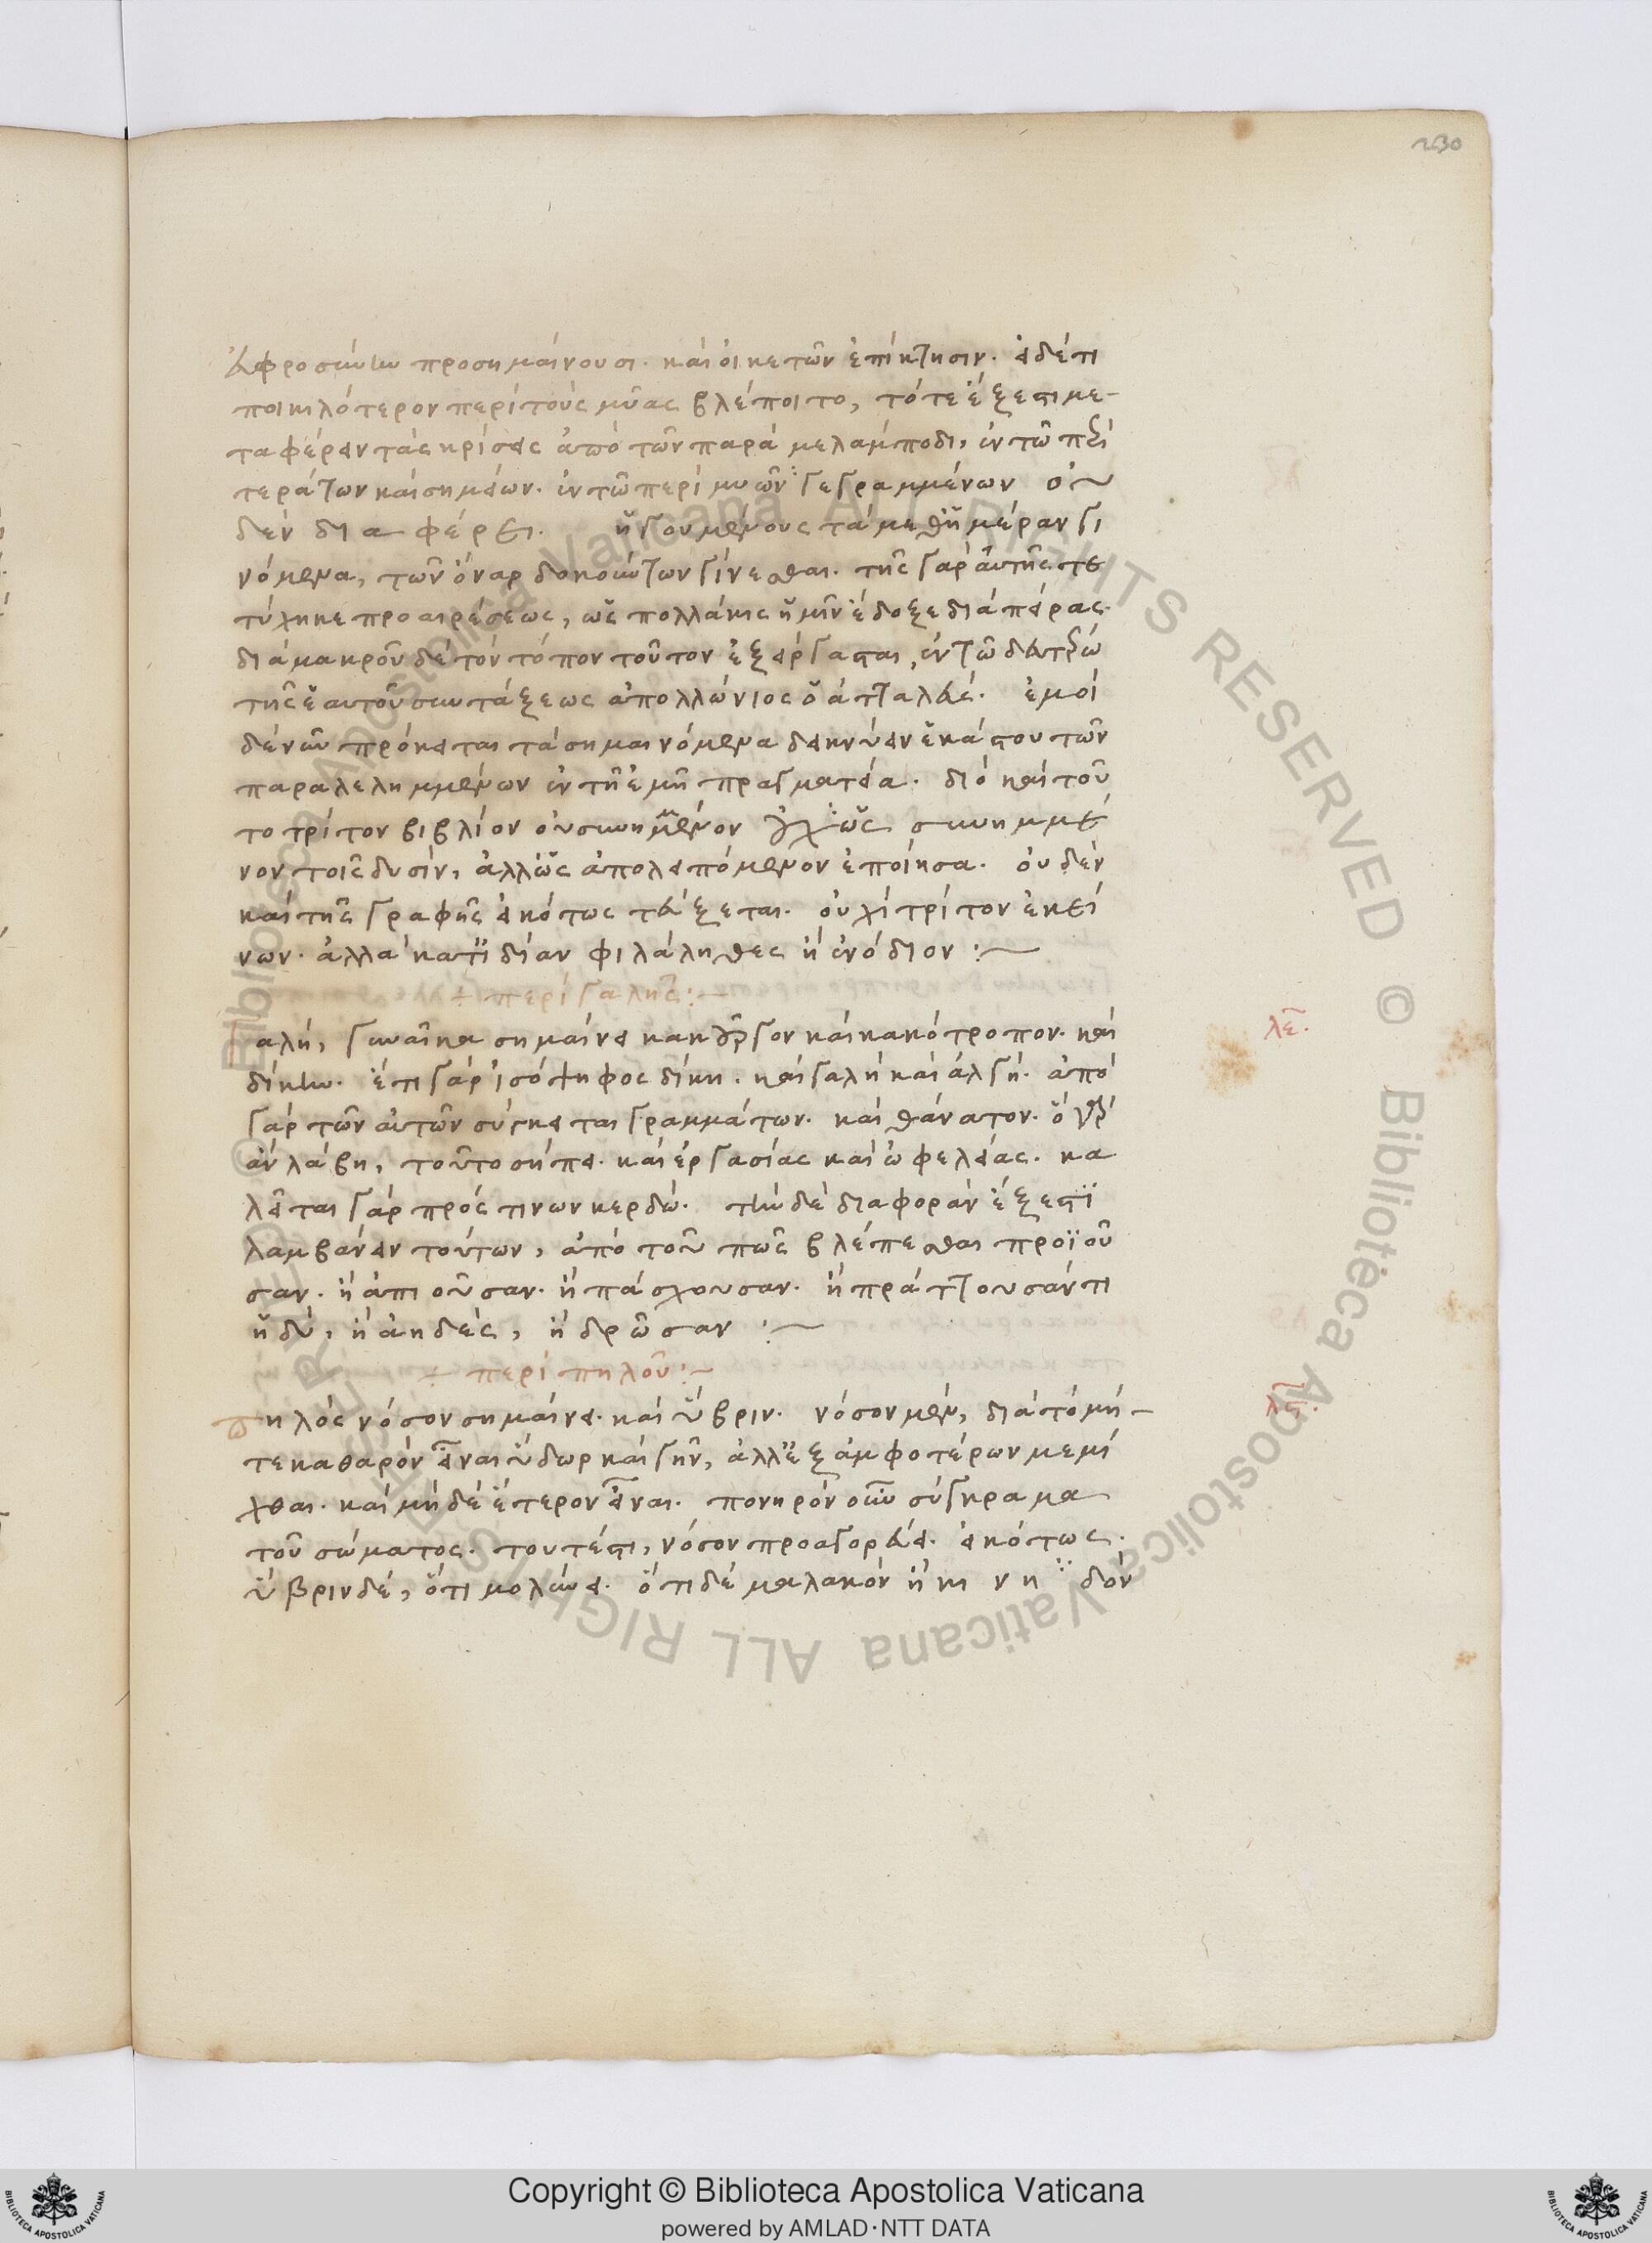 230
ἀφροσύνην προσημαίνουσι. καὶ οἰκετῶν ἐπίκτησιν. εἰ δέ τι
ποικιλότερον περὶ τοὺς μῦας βλέποιτο, τότε ἔξεστι με-
ταφέρειν τὰς κρίσεις ἀπὸ τῶν παρὰ μελάμποδι, ἐν τῶ περὶ
τεράτων καὶ σημείων. ἐν τῶ περὶ μυῶν γεγραμμένων οὐ
δὲν διαφέρει. ἡγουμένους τὰ μεθ' ἡμέραν γι
νόμενα, τῶν ὄναρ δοκούντων γίνεσθαι. τῆς γὰρ αὐτῆς τε
τύχηκε προαιρέσεως, ὡς πολλάκις ἡμῖν ἔδοξε διὰ πείρας.
διὰ μακροῦ δὲ τὸν τόπον τοῦτον ἐξείργασται, ἐν τῶ δευτέρω
τῆς ἑαυτοῦ συντάξεως ἀπολλώνιος ὁ ἀτταλεύς. ἐμοὶ
δὲ νῦν πρόκειται τὰ σημαινόμενα δεικνύειν ἑκάστου τῶν
παραλελημμένων ἐν τῆ ἐμῆ πραγματεία. διὸ καὶ τοῦ
το τρίτον βιβλίον οὐ συνημμένον οὐχ' ὡς συνημμέ
νον τοῖς δυσίν, ἀλλ' ὡς ἀπολειπόμενον ἐποίησα. οὐδὲν
καὶ τῆς γραφῆς εἰκότως τεύξεται. οὐχὶ τρίτον ἐκεί
νων. ἀλλὰ κατ' ἰδίαν φιλάληθες ἢ ἐνόδιον :~
+ περὶ γαλῆς :~
Γαλῆ, γυναῖκα σημαίνει κακοῦργον καὶ κακότροπον. καὶ
λε.
δίκην. ἔστι γὰρ ἰσόψηφος δίκη. καὶ γαλῆ καὶ ἀλγή. ἀπὸ
γὰρ τῶν αὐτῶν σύγκειται γραμμάτων. καὶ θάνατον. ὅ γὰρ
ἂν λάβη, τοῦτο σήπει. καὶ ἐργασίας καὶ ὠφελείας. κα
λεῖται γὰρ πρός τινων κερδώ. τὴν δὲ διαφορὰν ἔξεστι
λαμβάνειν τούτων, ἀπὸ τοῦ πῶς βλέπεσθαι προϊοῦ
σαν. ἢ ἀπιοῦσαν. ἢ πάσχουσαν. ἢ πράττουσάν τι
ἡδύ, ἢ ἀηδές, ἢ δρῶσαν :~
+ περὶ πηλοῦ :~
Πηλὸς νόσον σημαίνει. καὶ ὕβριν. νόσον μέν, διὰ τὸ μή-
λϛ.
τε καθαρὸν εἶναι ὕδωρ καὶ γῆν, ἀλλ' ἐξ ἀμφοτέρων μεμί
χθαι. καὶ μηδὲ ἕτερον εἶναι. πονηρὸν οὖν σύγκραμα
τοῦ σώματος. τουτέστι, νόσον προαγορεύει. εἰκότως.
ὕβριν δέ, ὅτι μολύνει. ὅτι δὲ μαλακὸν ἢ κι νη δὸν